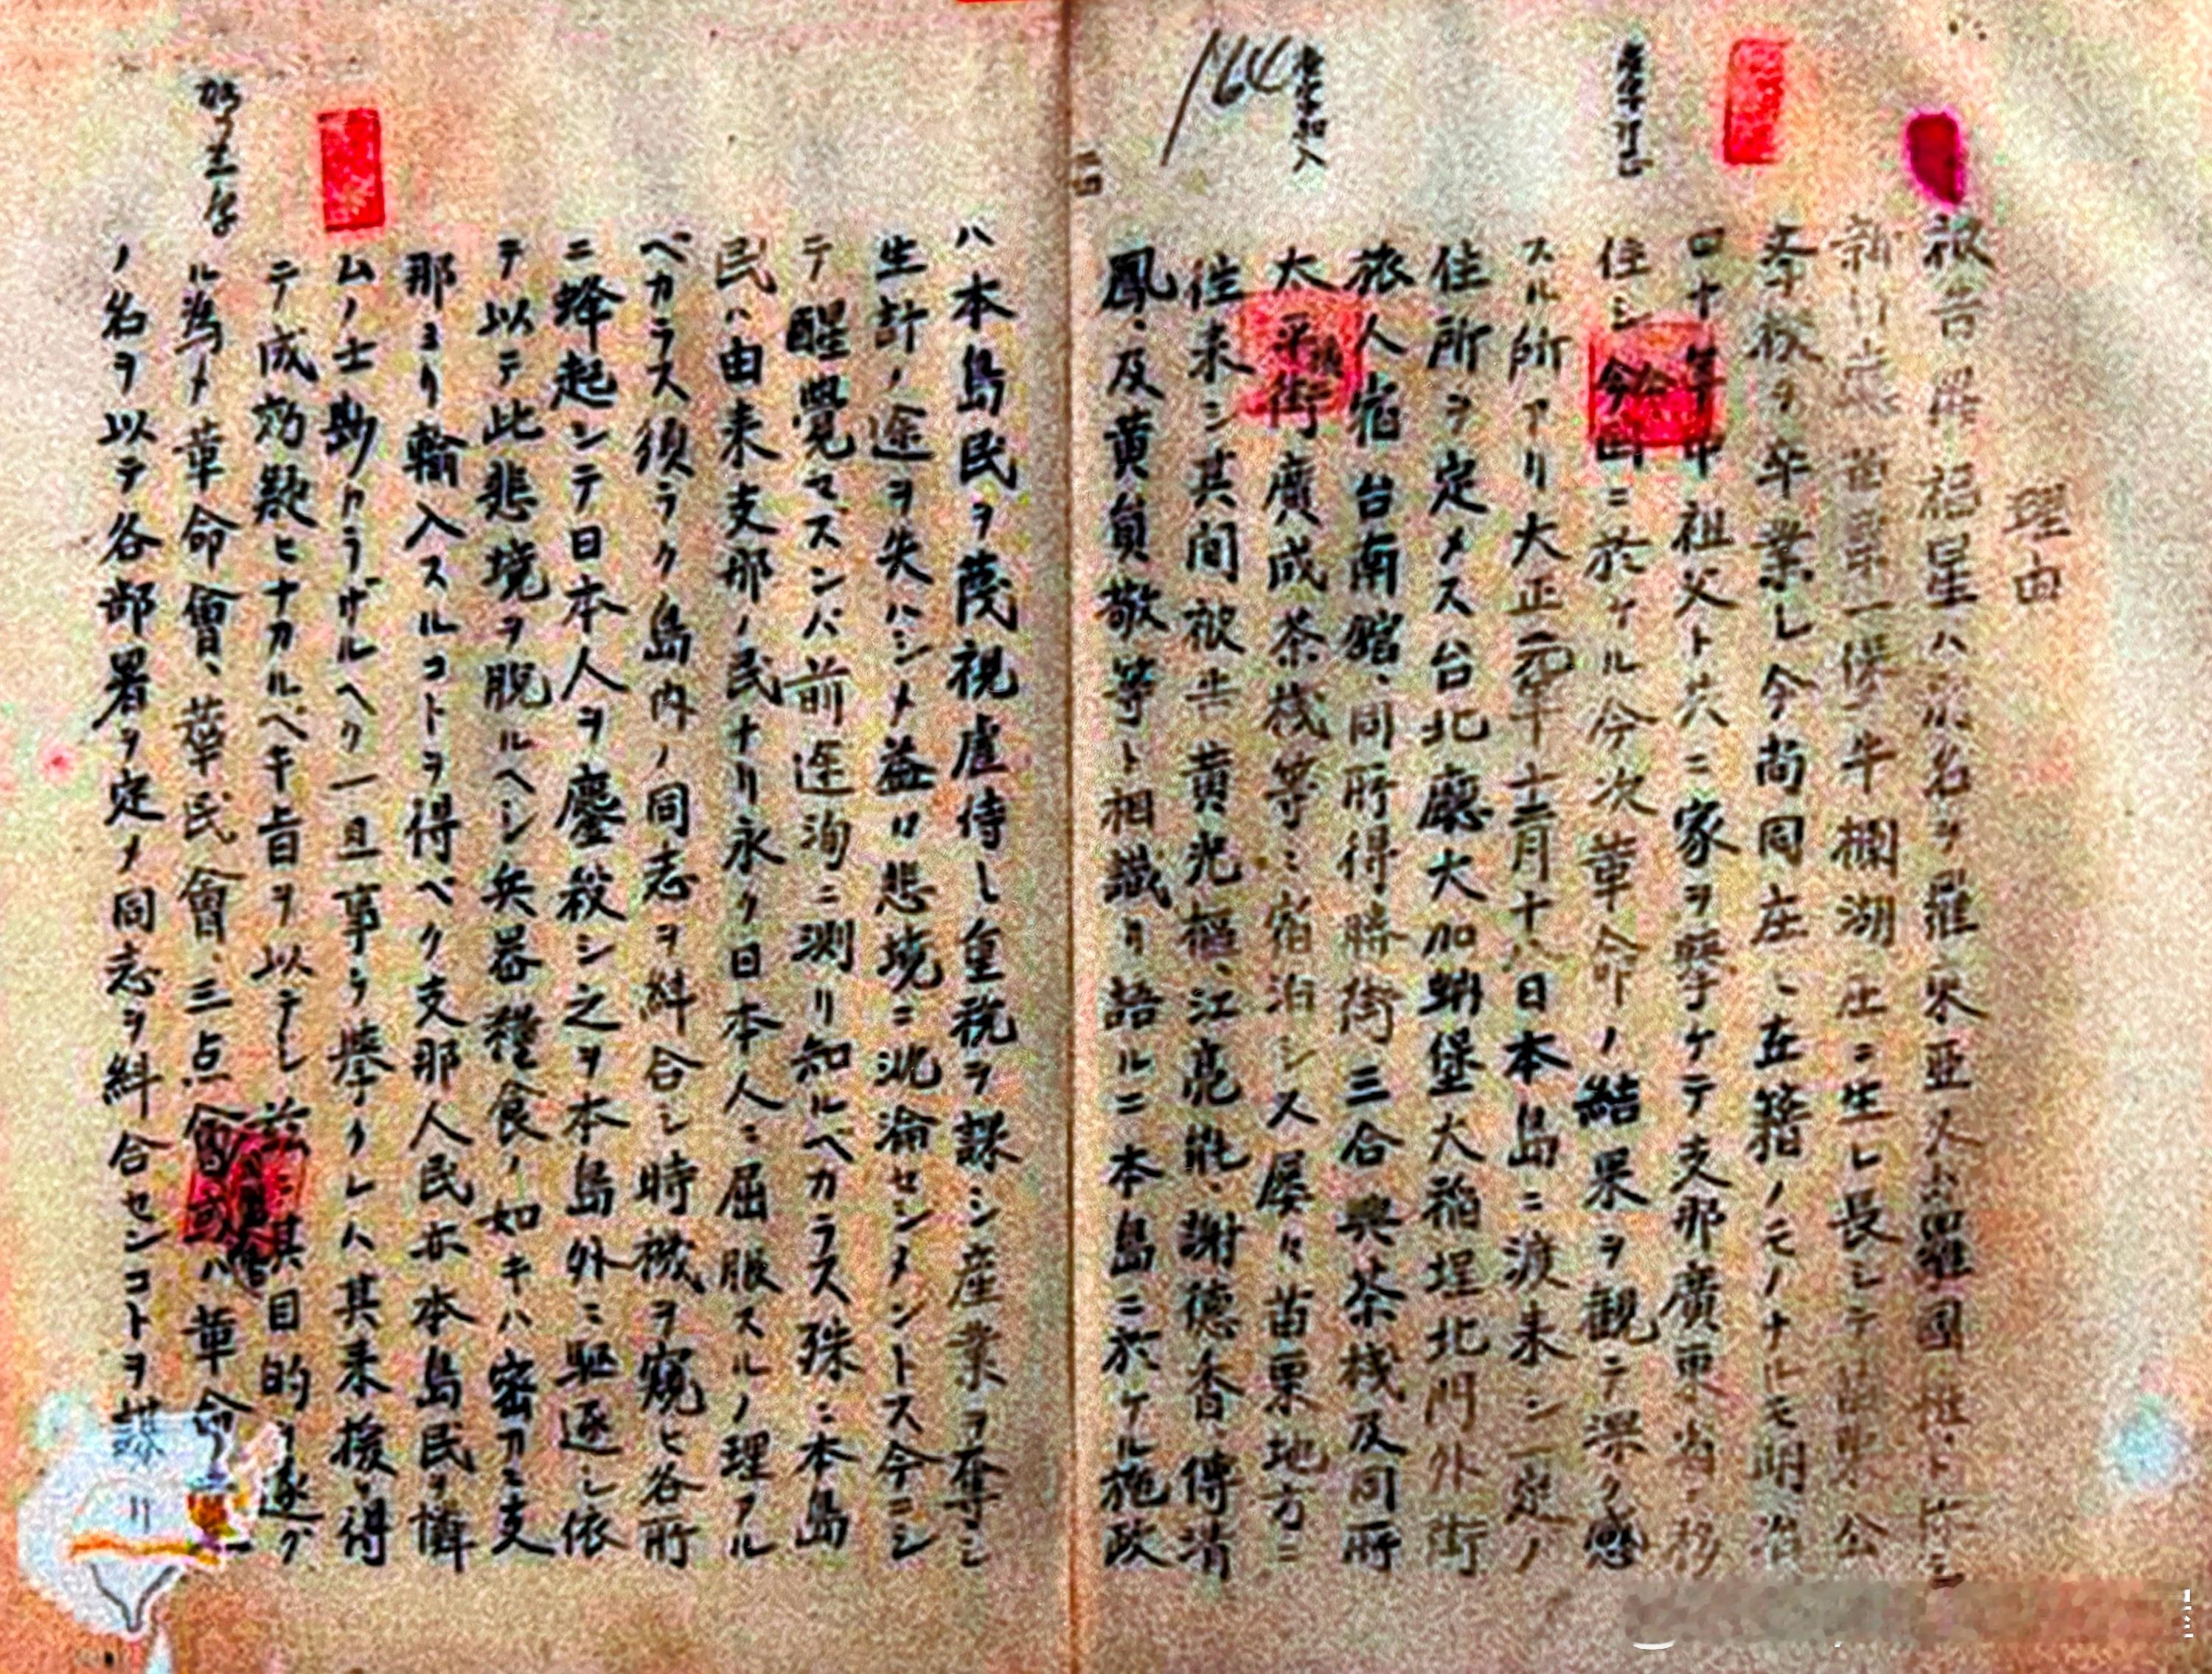 理由
被告羅福星ハ
牛欄湖庄ニ生レ長シテ
學校ヲ卒業シ今尚同庄ニ在籍ノモノナルモ明治
四十年中祖父ト共ニ家ヲ擧ケテ支那廣東省ニ移
住シ今回ニ於ケル今次革命ノ結果ヲ観テ深ク感
スル所アリ大正元年十二月十八日本島ニ渡来シ一定ノ
住所ヲ定メス台北廳大加蚋堡大稲埕北門外街
旅人宿台南館、同所得勝街三合興茶棧及同所
太平街廣成茶棧等ニ宿泊シ又屡々苗栗地方ニ
往来シ其間被告黄光樞、江亮能、謝德香、傅清
鳳、及黄員敬等ト相識リ語ルニ本島ニ於ケル施政
164
ハ本島民ヲ蔑視虐待シ重税ヲ課シ産業ヲ奪シ
生計ノ途ヲ失ハシメ益々悲境ニ沈淪セシメントス今ニシ
テ醒覺セスンバ前途洵ニ測リ知ルベカラス殊ニ本島
民ハ由来支那ノ民ナリ永ク日本人ニ屈服スルノ理アル
ベカラス須ラク島内ノ同志ヲ糾合シ時機ヲ窺ヒ各所
ニ蜂起シテ日本人ヲ鏖殺シ之ヲ本島外ニ駆逐シ依
テ以テ此悲境ヲ脱ルヘシ兵器糧食ノ如キハ密カニ支
那ヨリ輸入スルコトヲ得ベク支那人民亦本島民ヲ憐
ムノ士尠カラザルヘク一旦事ヲ擧クレハ其来援ヲ得
テ成功疑ヒナカルベキ旨ヲ以テシ 其目的ヲ遂ク
ル為メ革命會、華民會、三点會或ハ革命
ノ名ヲ以テ各部署ヲ定メ同志ヲ糾合センコトヲ謀リ